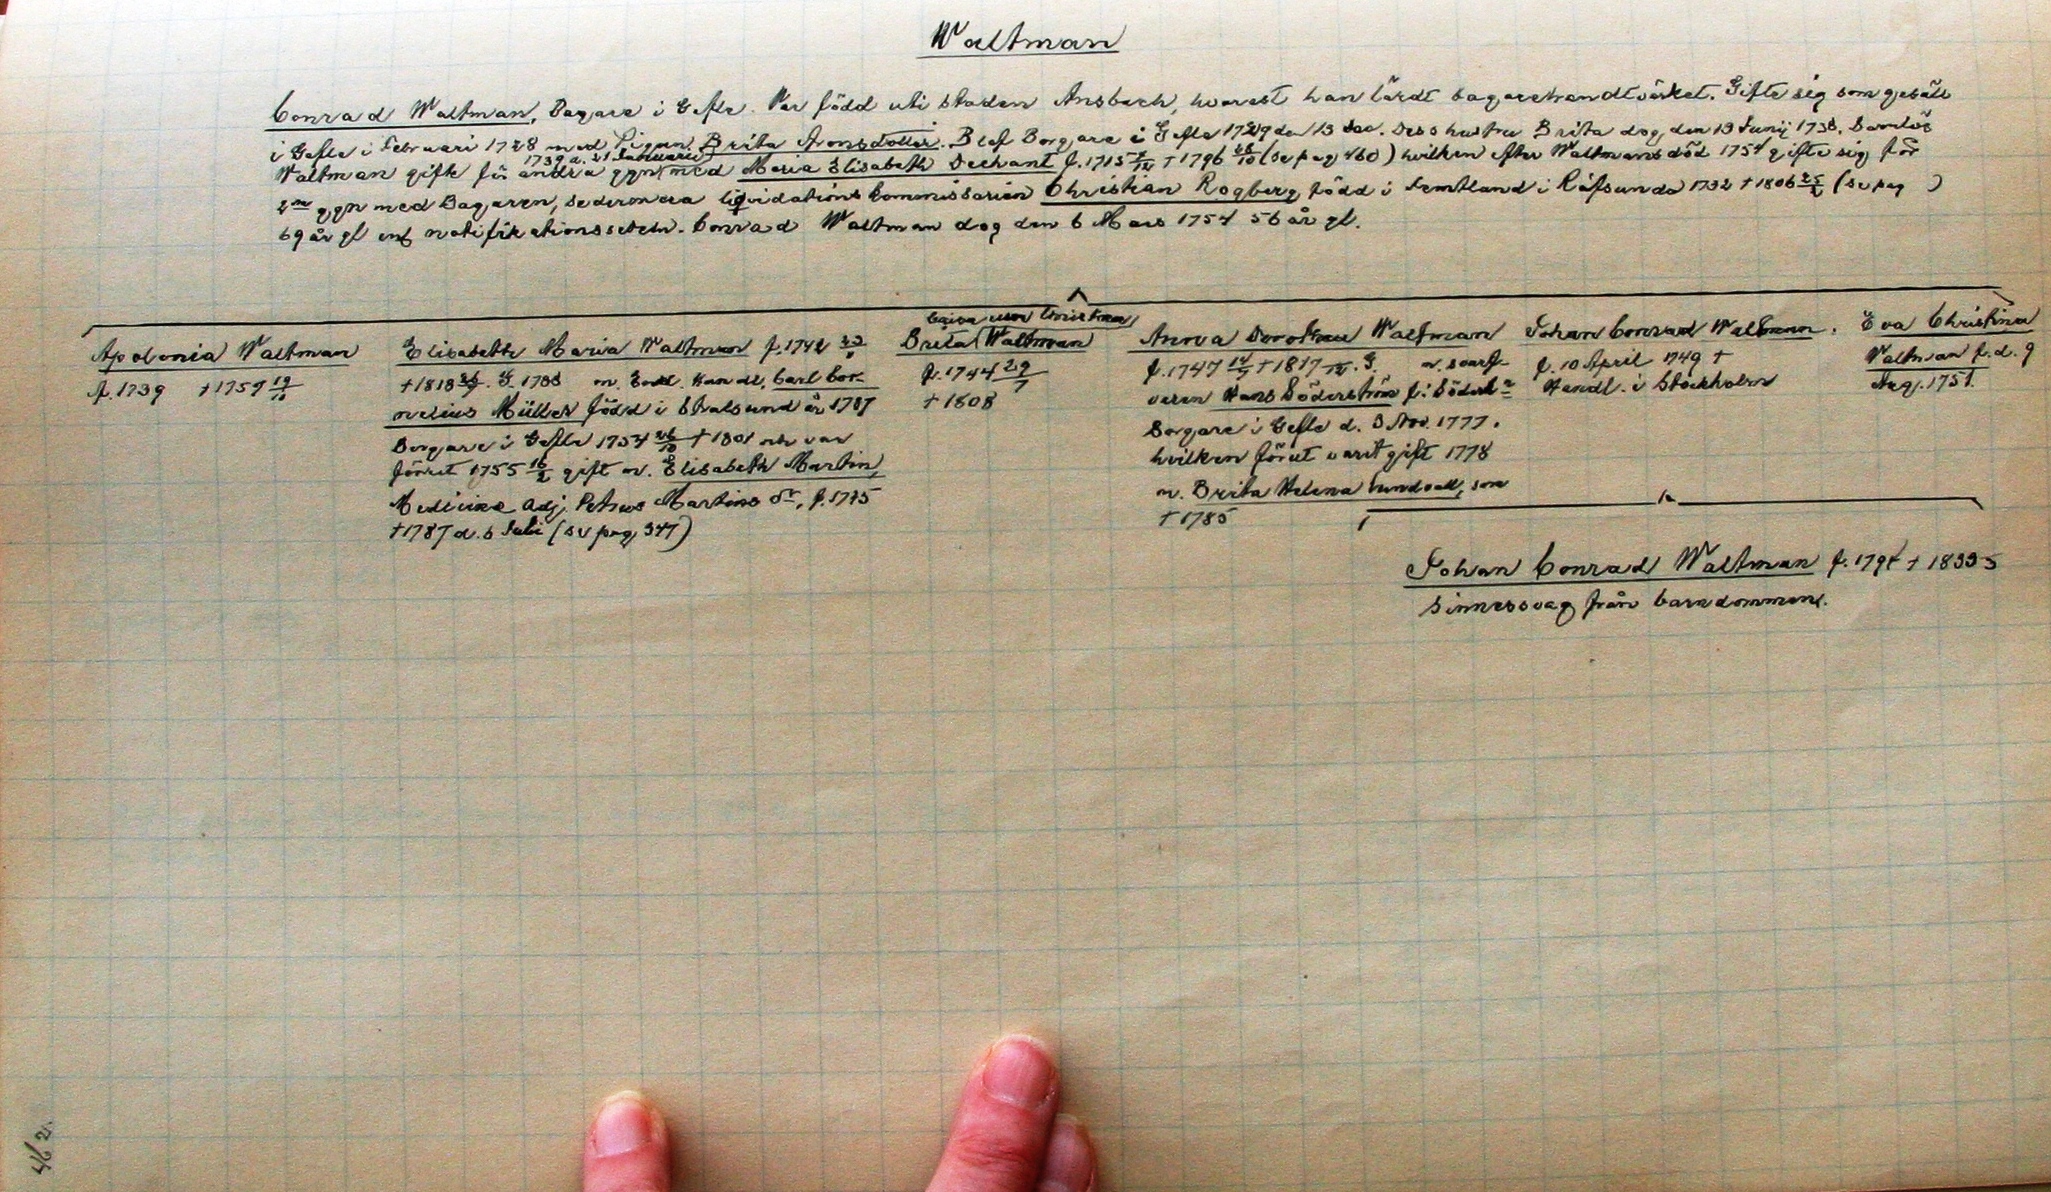 Waltman
Conrad Waltman, Bagare i Gefle. Var född uti staden Ansbach, hvarest han lärdt bagarehandtvärket. Gifte sig som gesäll
i Gefle i Februari 1728 med Pigan Brita Aronsdotter. Blef Borgare i Gefle 1729 den 13 Dec. Dess hustru Brita dog den 13 Junij 1738. Barnlös
1739 d. 21 Januarii
Waltman gifte för andra ggn med Maria Elisabeth Dechant f. 1715 † 1796 28/10 (se pag 460) hvilken efter Waltmans död 1754 gifte sig för
2ra ggn med Bagaren, sedermera liqvidationskommissarien Christian Rogberg född i Jemtland i Räfsunda 1732 † 1806 25/2 (se pag )
69 år gl enl notifikationssedeln. Conrad Waltman dog den 6 Mars 1754 56 år gl.
Apolonia Waltman
f. 1739 † 1759 19/10
Elisabeth Maria Waltman f. 1742
† 1818. G. 1788 m. Handl. Carl Cor-
nelius Müller född i Stralsund år 1727
Borgare i Gefle 1754 26/10 † 1801 och var
förut 1755 16/2 gift m. Elisabeth Martin,
Medicine Adj. Petrus Martins dr, f. 1725
† 1787 d. 6 Juli (se pag 347)
Christina
Brita Waltman
f. 1744 29/7
† 1808
Anna Dorothea Waltman
f. 1747 † 1817 G. m. svarf-
varen Hans Söderström f. i Söderh-n
Borgare i Gefle d. 3 Nov. 1777.
hvilken förut varit gift 1778
m. Brita Helena Lundvall, som
† 1785
Johan Conrad Waltman.
f. 10 April 1749 †
Handl. i Stockholm
Eva Christina
Waltman f. d. 9
Aug. 1751.
Johan Conrad Waltman f. 1791 † 1835
Sinnessvag från barndommen.
462.